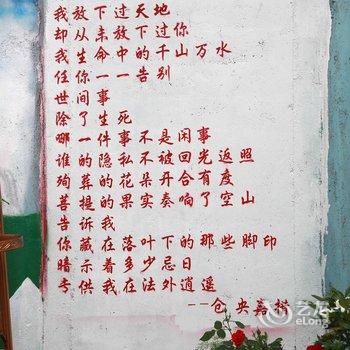 我放下过天地
却从未放下过你
我生命中的千山万水
任你一一告别
世间事
除了生死
哪一件事不是闲事
谁的隐私不被回光返照
殉葬的花朵开合有度
菩提的果实奏响了空山
告诉我
你藏在落叶下的那些脚印
暗示着多少忌日
专供我在法外逍遥
--仓央嘉措
艺龙
eLong.com